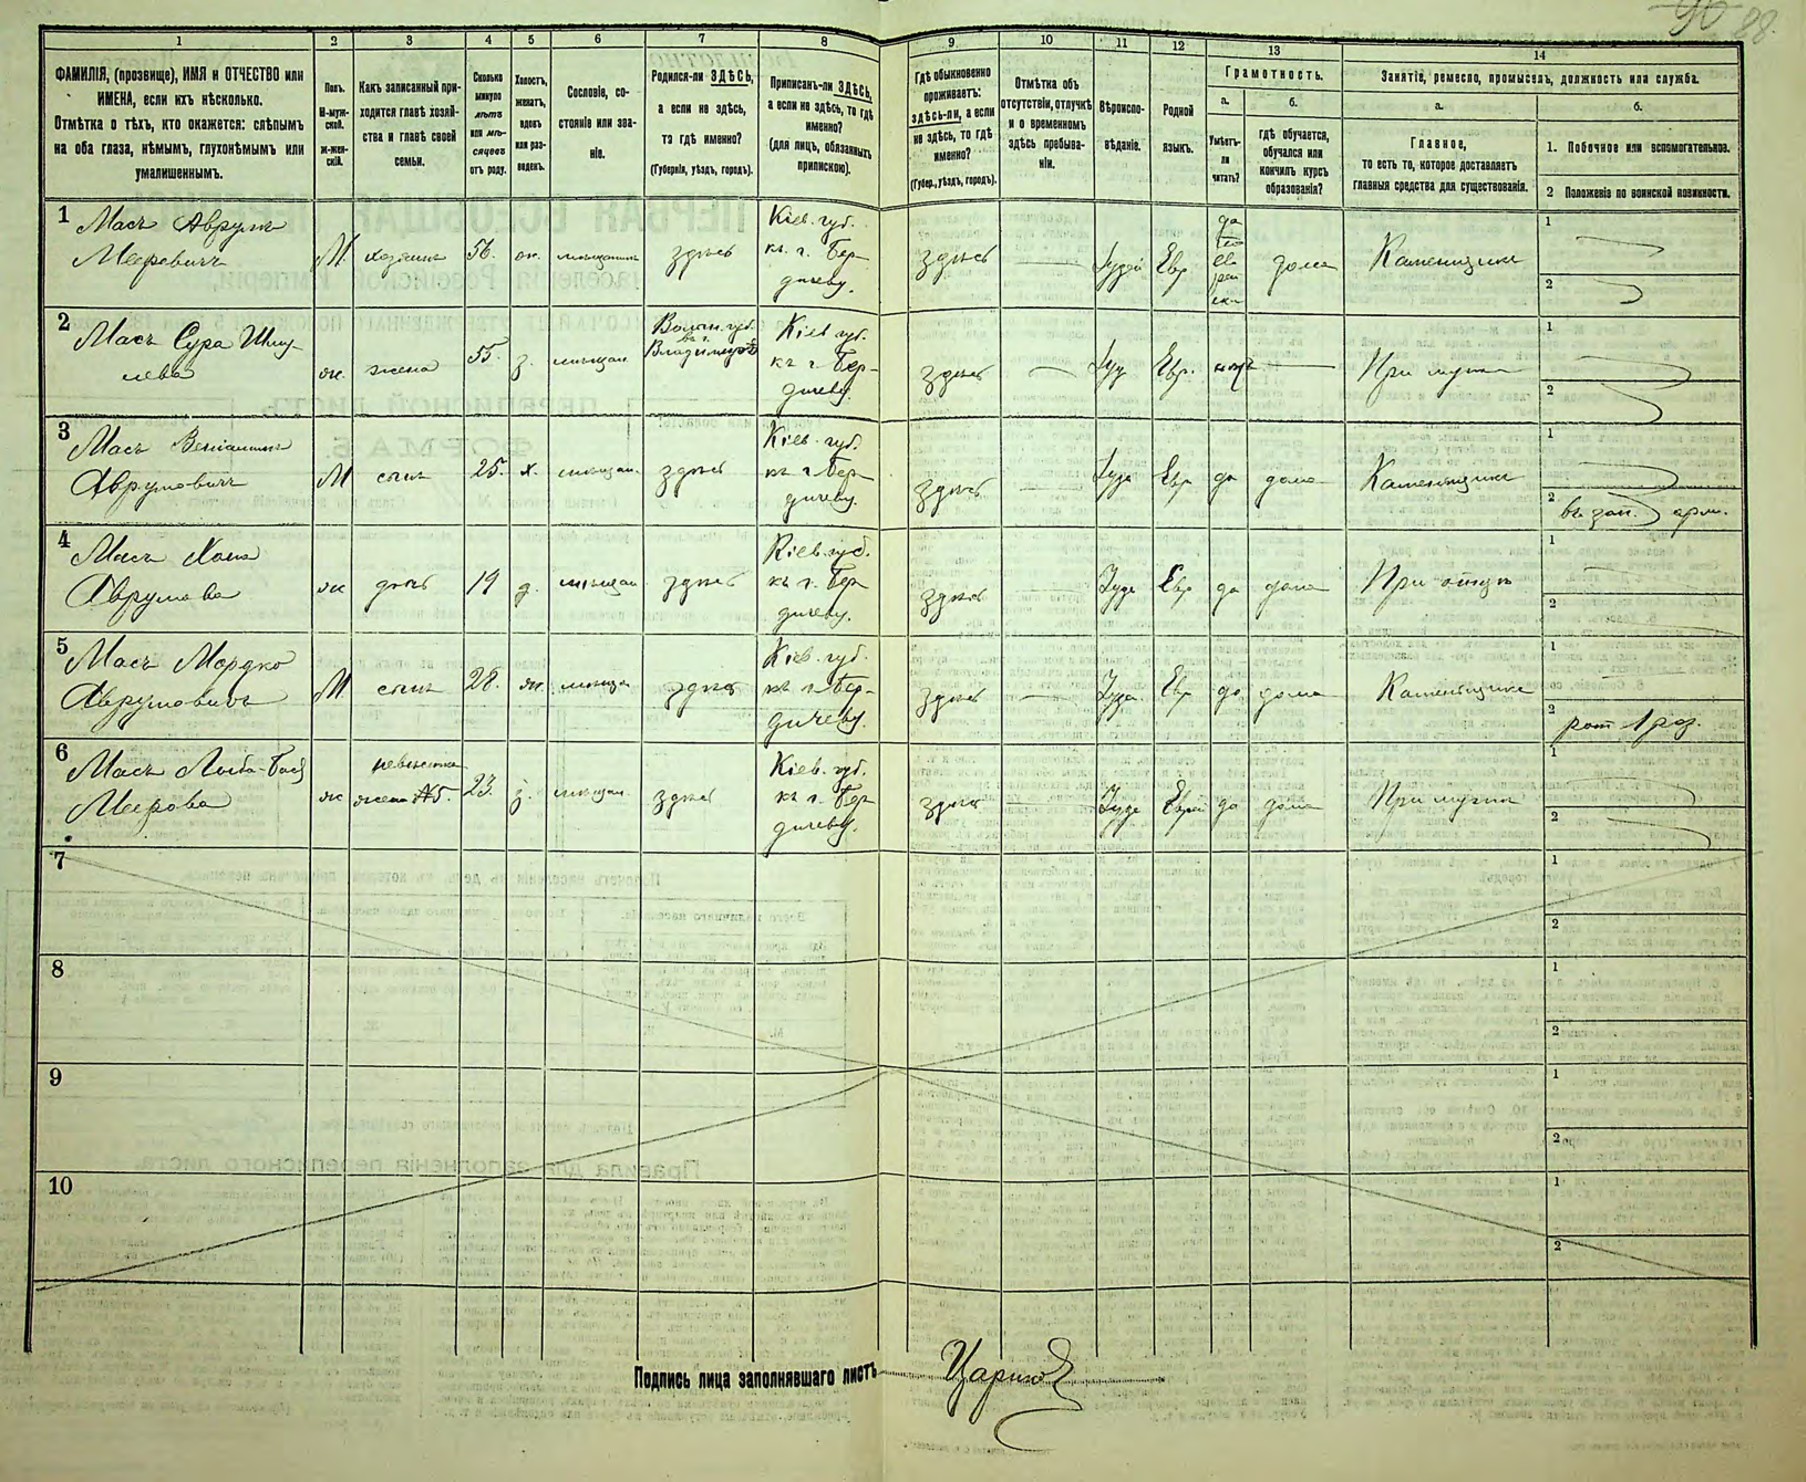 88.
1 2 3 4 5 6 7 8 9 10 11 12 13 14
ФАМИЛІЯ, (прозвище), ИМЯ и ОТЧЕСТВО или
ИМЕНА, если ихъ нѣсколько.
Отмѣтка о тѣхъ, кто окажется: слѣпымъ
на оба глаза, нѣмымъ, глухонѣмымъ или
умалишеннымъ.
Полъ.
М-муж-
ской.
Ж-жен-
скій.
Какъ записанный при-
ходится главѣ хозяй-
ства и главѣ своей
семьи.
Сколько
минуло
лѣтъ
или мѣ-
сяцевъ
отъ роду.
Холостъ,
женатъ,
вдовъ
или раз-
веденъ.
Сословіе, со-
стояніе или зва-
ніе.
Родился-ли ЗДѢСЬ,
а если не здѣсь,
то гдѣ именно?
(Губернія, уѣздъ, городъ).
Приписанъ-ли ЗДѢСЬ,
а если не здѣсь, то гдѣ
именно?
(для лицъ, обязанныхъ
припискою).
Гдѣ обыкновенно
проживаетъ:
ЗДѢСЬ-ли, а если
не здѣсь, то гдѣ
именно?
(Губер., уѣздъ, городъ).
Отмѣтка объ
отсутствіи, отлучкѣ
и о временномъ
здѣсь пребыва-
ніи.
Вѣроиспо-
вѣданіе.
Родной
языкъ.
Грамотность.
а.
Умѣетъ-
ли
читать?
б.
гдѣ обучается,
обучался или
кончилъ курсъ
образованія?
Занятіе, ремесло, промыселъ, должность или служба.
а.
Главное,
то есть то, которое доставляетъ
главныя средства для существованія.
б.
1. Побочное или вспомогательное.
2 Положеніе по воинской повинности.
1 Масъ Аврумъ
Меировичъ
М. хозяинъ 56. жн. мѣщанинъ здѣсь
Кіев. губ.
къ г. Бер-
дичеву.
здѣсь Іудей Евр.
да
по
ев
рей
ски
дома Каменщикъ
1
2
2 Масъ Сура Шму-
лева
ж. жена 55. з. мѣщан.
Волын. губ.
въ г.
Владимірѣ
Кіев. губ.
къ г. Бер-
дичеву.
здѣсь Іуд Евр. нѣтъ При мужѣ
1
2
3 Масъ Веніаминъ
Аврумовичъ
М сынъ 25. х. мѣщан. здѣсь
Кіев. губ.
къ г. Бер-
дичеву.
здѣсь Іуде Евр да дома Каменщикъ
1
2 въ зап. арм.
4 Масъ Хана
Аврумова
ж дочь 19 д. мѣщан здѣсь
Кіев. губ.
къ г. Бер
дичеву.
здѣсь Іуде Евр да дома При отцѣ
1
2
5 Масъ Мордко
Аврумовичъ
М сынъ 28. жн. мѣща здѣсь
Кіев. губ.
къ г. Бер-
дичеву.
здѣсь Іуде. Евр да дома Каменщикъ
1
2 рат 1 раз.
6 Масъ
Меирова
ж
невѣстка
жена №5.
23. з. мѣщан. здѣсь
Кіев. губ.
къ г. Бер
дичеву.
здѣсь Іуде Еврей да дома При мужѣ
1
2
7
1
2
8
1
2
9
1
2
10
1
2
Подпись лица заполнявшаго листъ